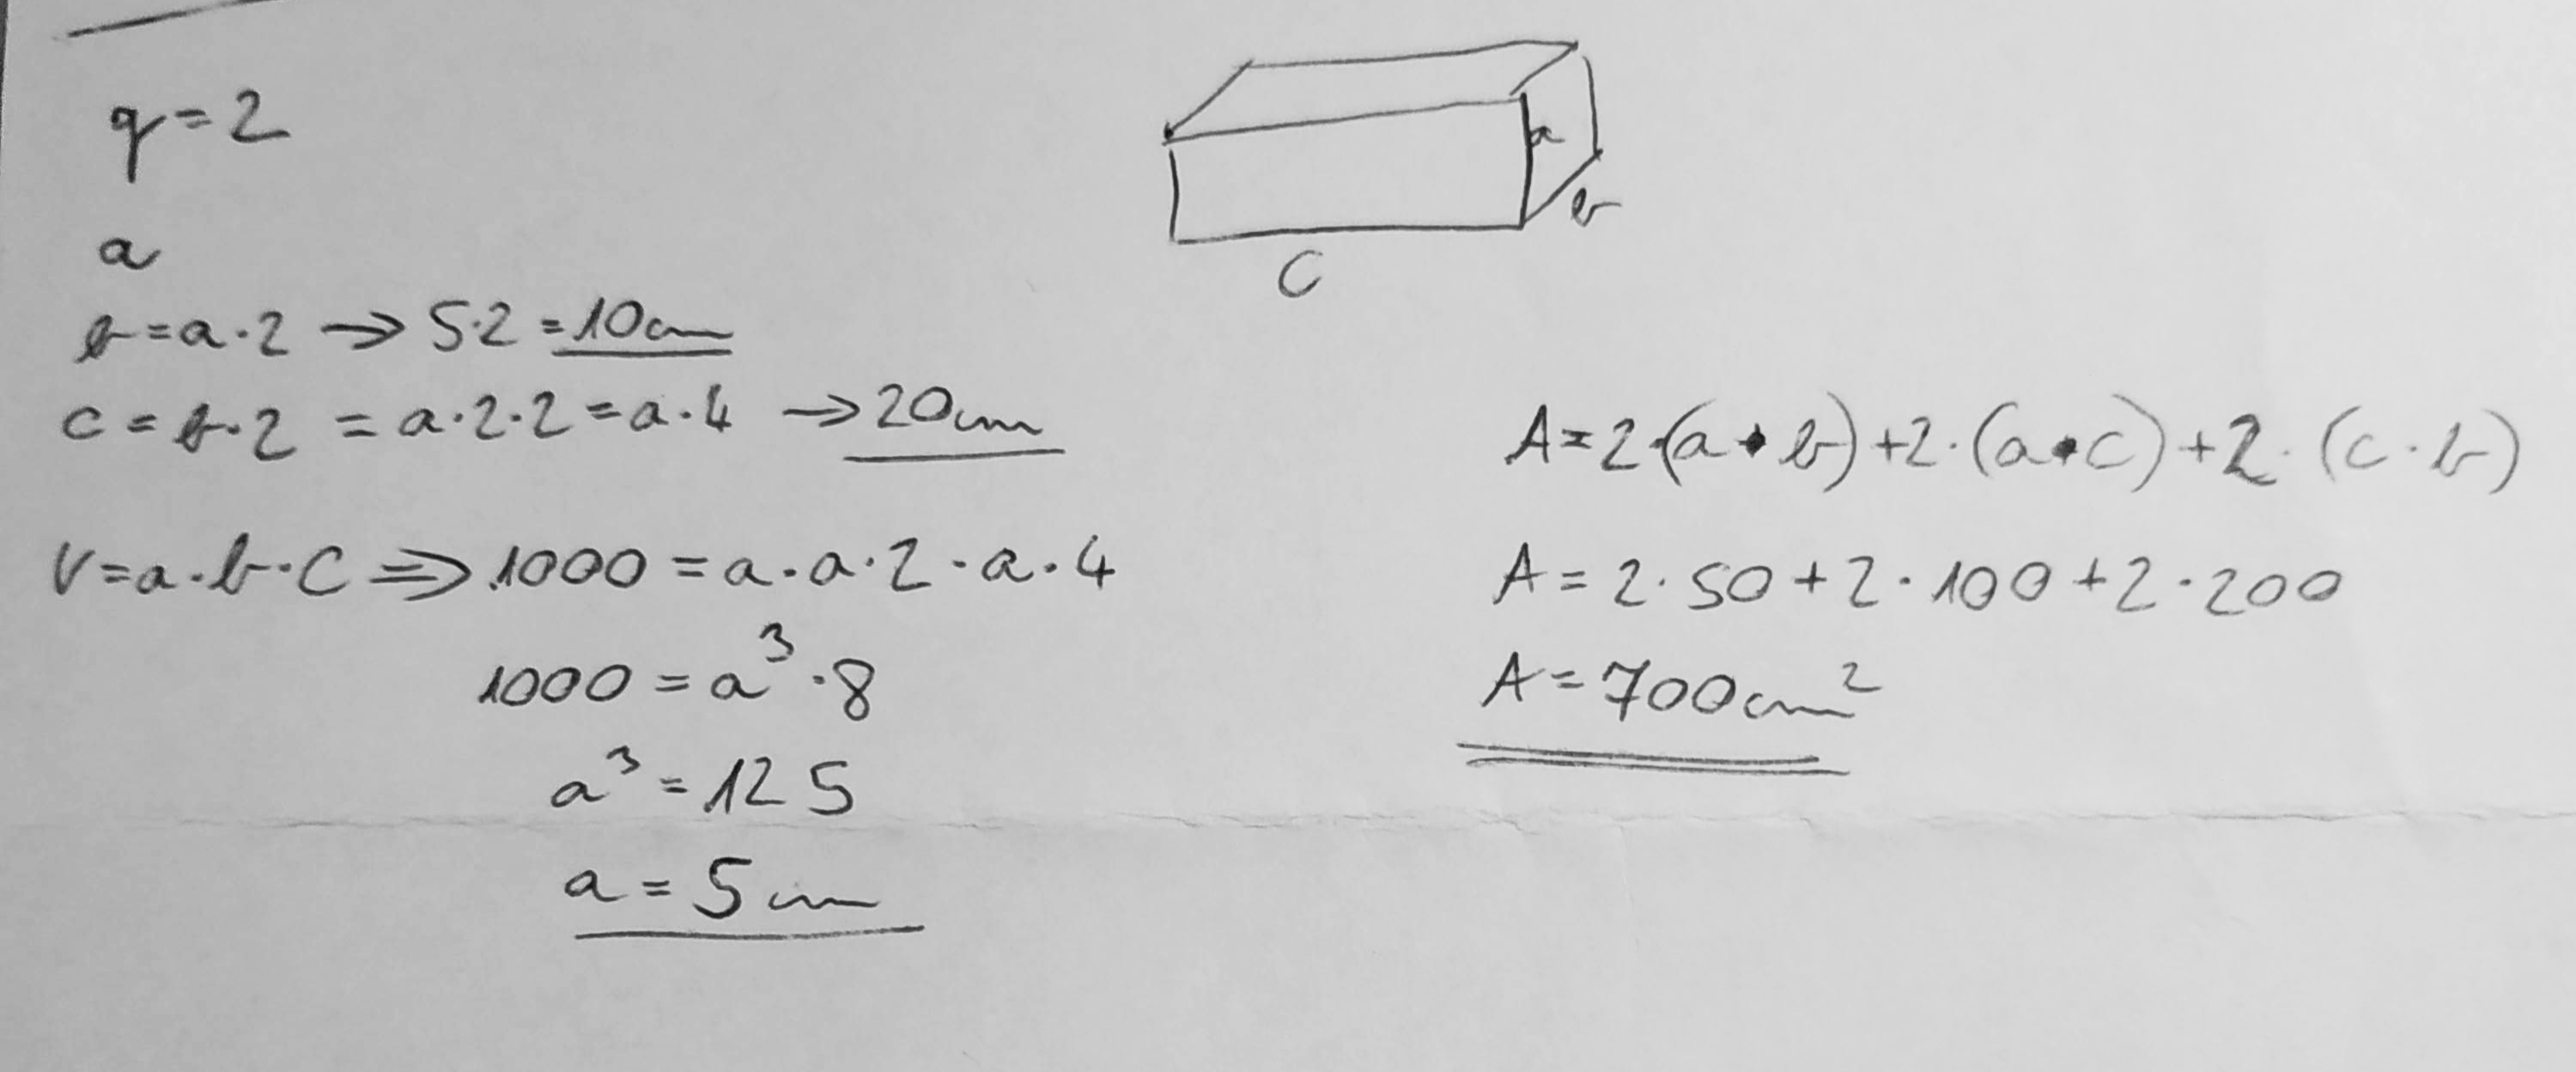 q = 2
a
b = a · 2 → 5·2 = 10cm
c = b · 2 = a · 2 · 2 = a · 4 → 20cm
V = a · b · c ⇒ 1000 = a · a · 2 · a · 4
1000 = a³ · 8
a³ = 125
a = 5cm
a
b
C
A = 2·(a · b) + 2·(a · c) + 2·(c · b)
A = 2·50 + 2·100 + 2·200
A = 700cm²